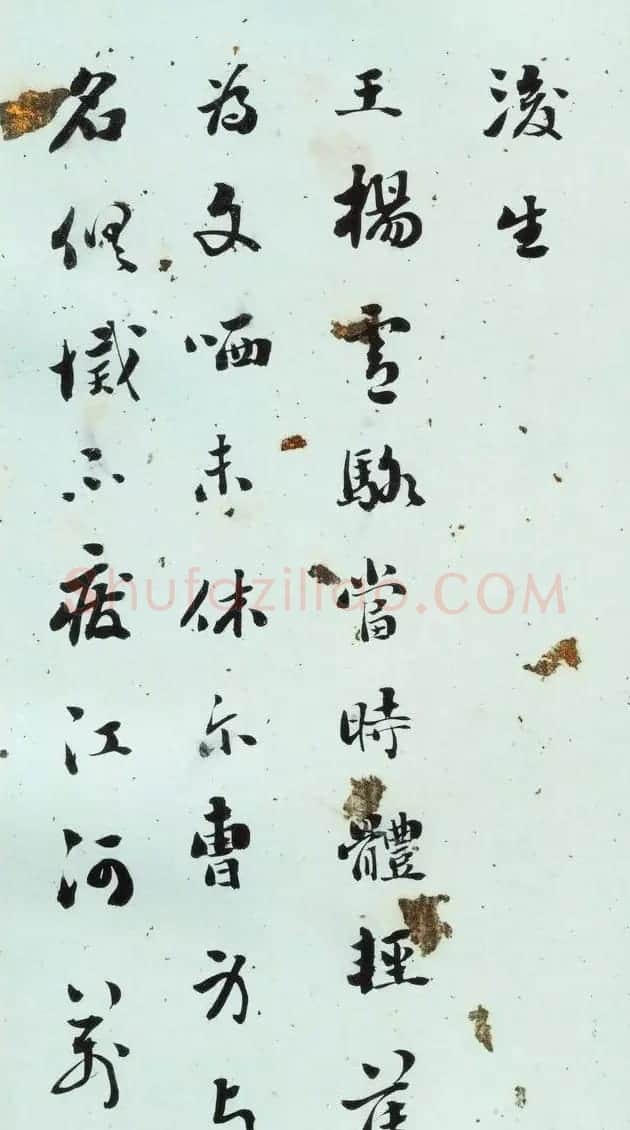 後生
王楊盧駱當時體輕
為文哂未休尔曹身与
名俱滅不廢江河萬
Shufaziliao.COM